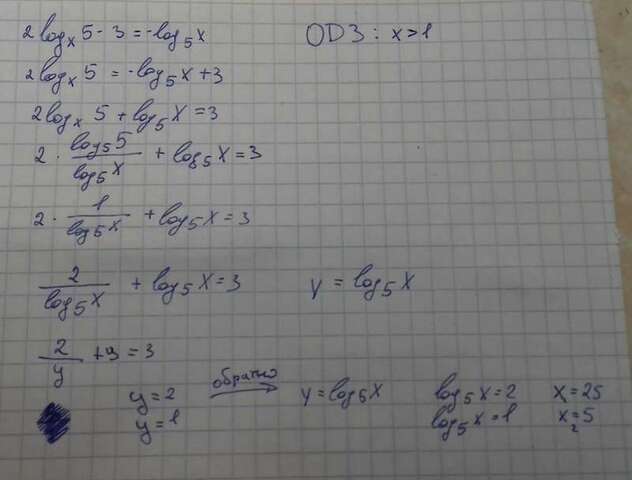 2log_x 5 - 3 = -log_5 x
OD3 : x > 1
2log_x 5 = -log_5 x + 3
2log_x 5 + log_5 x = 3
2 · log_5 5 / log_5 x + log_5 x = 3
2 · 1 / log_5 x + log_5 x = 3
2 / log_5 x + log_5 x = 3
y = log_5 x
2 / y + y = 3
y = 2
y = 1
обратно
y = log_5 x
log_5 x = 2
x_1 = 25
log_5 x = 1
x_2 = 5